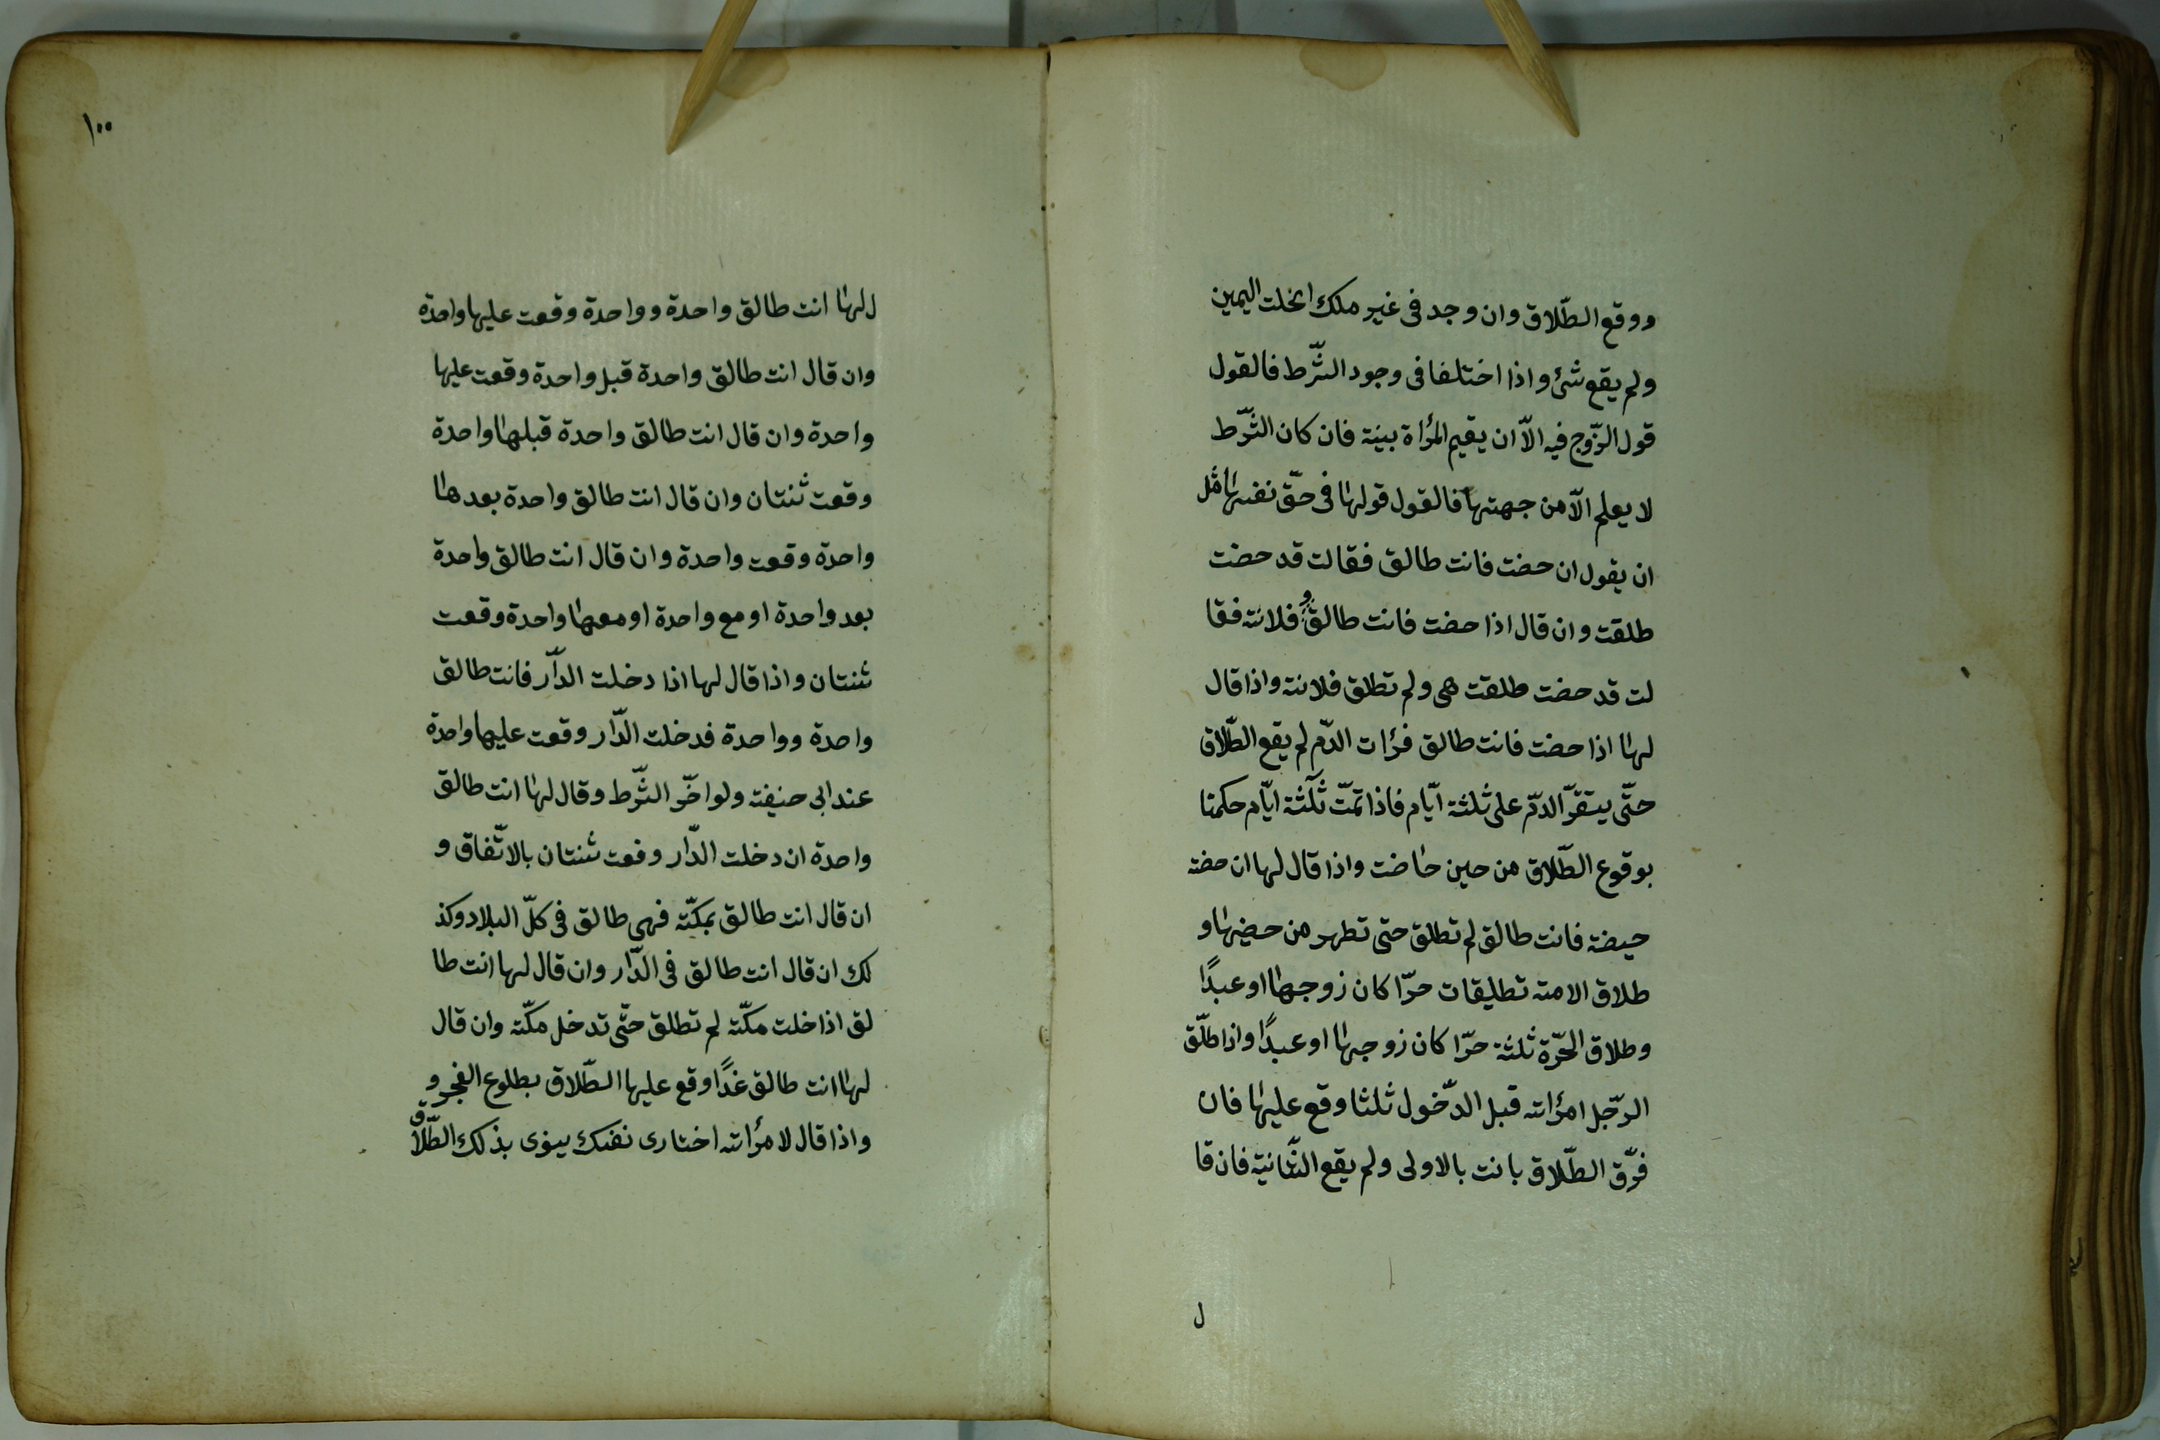 ووقع الطّلاق وان وجد فى غير ملك انحلت اليمين
ولم يقع شئ واذا اختلفا فى وجود الشّرط فالقول
قول الزّوج فيه الاّ ان يقيم المرأة بينة فان كان الشّرط
لا يعلم الاّ من جهتها فالقول قولها فى حقّ نفسها مثل
ان يقول ان حضت فانت طالق فقالت قد حضت
طلقت وان قال اذا حضت فانت طالق و فلانة فقا
لت قد حضت طلقت هى ولم تطلق فلانة واذا قال
لها اذا حضت فانت طالق فرأت الدّم لم يقع الطّلاق
حتّى يستقرّ الدّم على ثلثة ايّام فاذا تمّت ثلثة ايّام حكمنا
بوقوع الطّلاق من حين حاضت واذا قال لها ان حضة
حيضة فانت طالق لم تطلق حتى تطهر من حضيها و
طلاق الامة تطليقات حرّا كان زوجها او عبدًا
وطلاق الحرّة ثلثة حرّا كان زوجها او عبدًا واذا طلّق
الرّجل امرأته قبل الدّخول ثلثا وقع عليها فان
فرّق الطّلاق بانت بالاولى ولم يقع الثّانية فان قا
ل
١٠٠
ل لها انت طالق واحدة وواحدة وقعت عليها واحدة
وان قال انت طالق واحدة قبل واحدة وقعت عليها
واحدة وان قال انت طالق واحدة قبلها واحدة
وقعت ثنتان وان قال انت طالق واحدة بعدها
واحدة وقعت واحدة وان قال انت طالق واحدة
بعد واحدة او مع واحدة او معها واحدة وقعت
ثنتان واذا قال لها اذا دخلت الدّار فانت طالق
واحدة وواحدة فدخلت الدّار وقعت عليها واحدة
عند ابى حنيفة ولو اخّر الشّرط وقال لها انت طالق
واحدة ان دخلت الدّار وقعت ثنتان بالاتّفاق و
ان قال انت طالق بمكّة فهى طالق فى كلّ البلاد وكذ
لك ان قال انت طالق فى الدّار وان قال لها انت طا
لق اذا خلت مكّة لم تطلق حتّى تدخل مكّة وان قال
لها انت طالق غدًا وقع عليها الطّلاق بطلوع الفجر و
واذا قال لامرأته اختارى نفسك ينوى بذلك الطّلاق